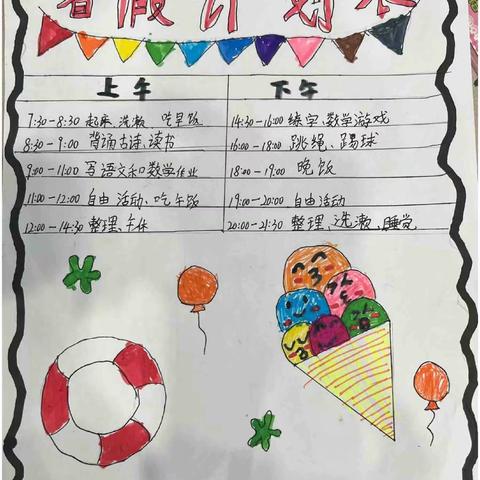 暑假计划表
上午 下午
7:30-8:30 起床、洗漱、吃早饭 14:30-16:00 练字、数学游戏
8:30-9:00 背诵古诗、读书 16:00-18:00 跳绳、踢球
9:00-11:00 写语文和数学作业 18:00-19:00 晚饭
11:00-12:00 自由活动、吃午饭 19:00-20:00 自由活动
12:00-14:30 整理、午休 20:00-21:30 整理、洗漱、睡觉